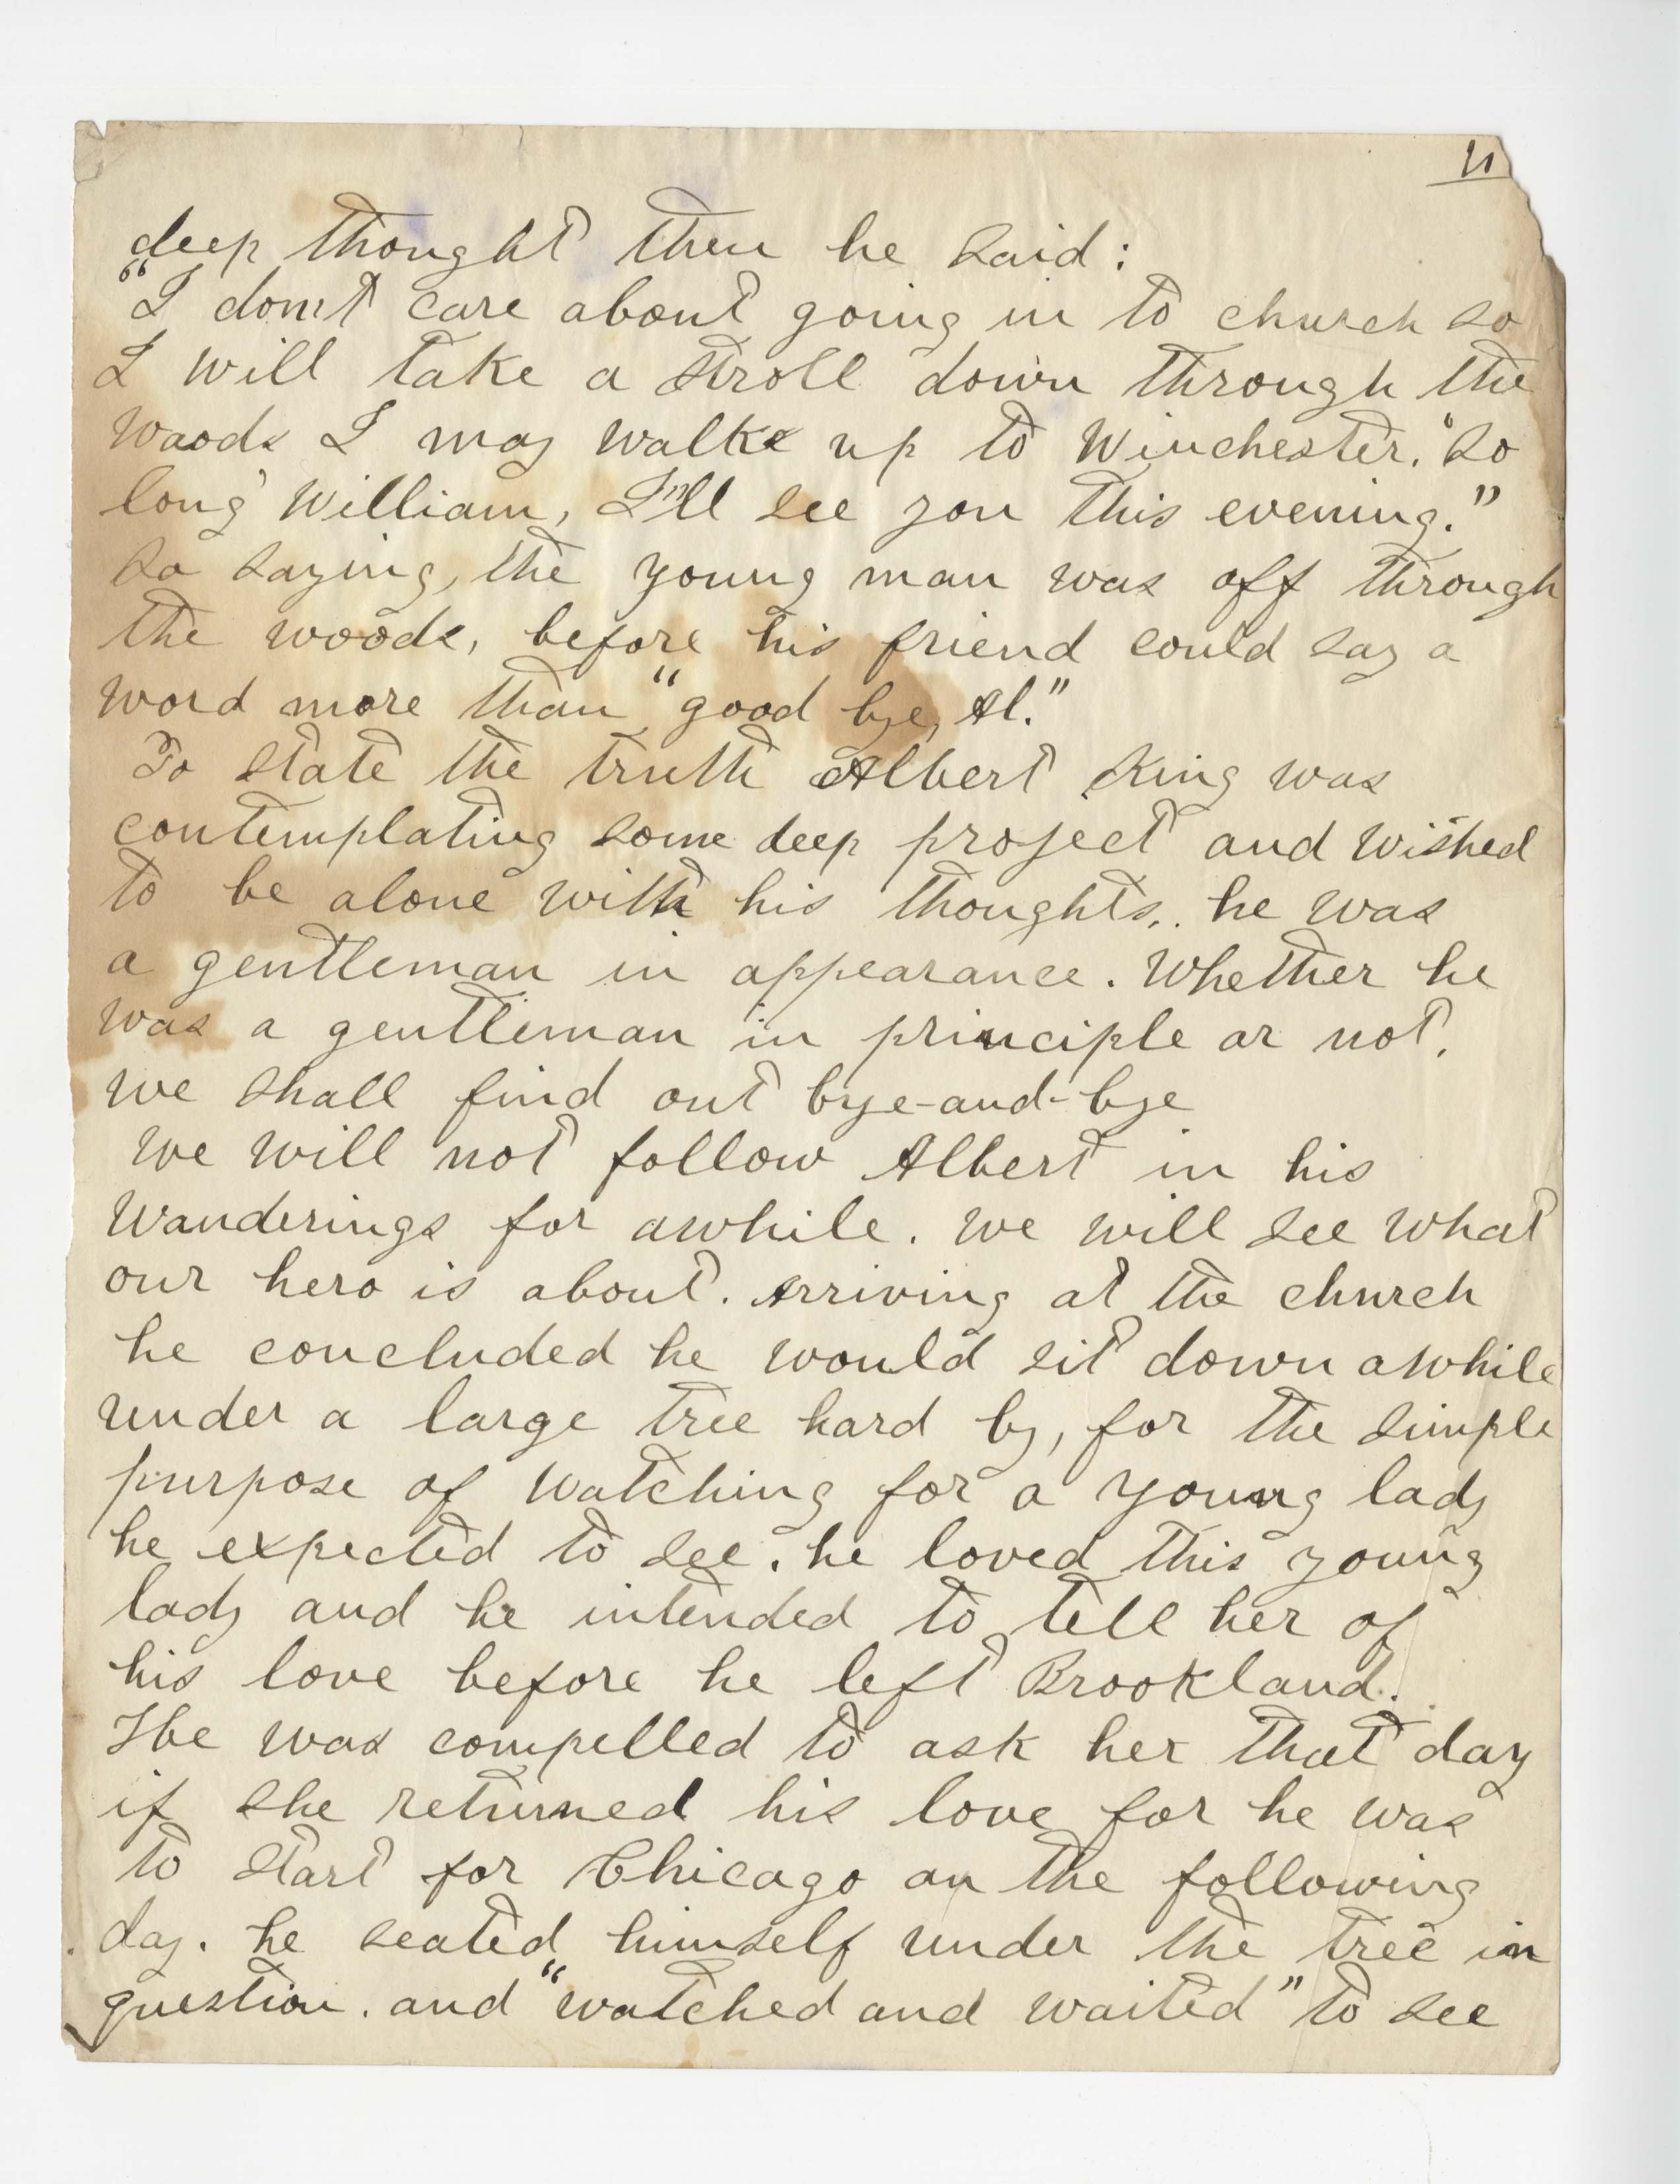 11
deep thought then he said:
"I don't care about going in to church so
I will take a stroll down through the
woods I may walk up to Winchester. "So
long William, I'll see you this evening."
So saying, the young man was off through
the woods, before his friend could say a
word more than "good bye, Al."
To state the truth Albert King was
contemplating some deep project and wished
to be alone with his thoughts,. he was
a gentleman in appearance. Whether he
was a gentleman in principle or not,
we shall find out bye-and-bye
We will not follow Albert in his
wanderings for awhile. We will see what
our hero is about. Arriving at the church
he concluded he would sit down awhile
under a large tree hard by, for the simple
purpose of watching for a young lady
he expected to see. he loved this young
lady and he intended to tell her of
his love before he left Brookland.
He was compelled to ask her that day
if she returned his love for he was
to start for Chicago on the following
day. he seated himself under the tree in
question. and "watched and waited" to see